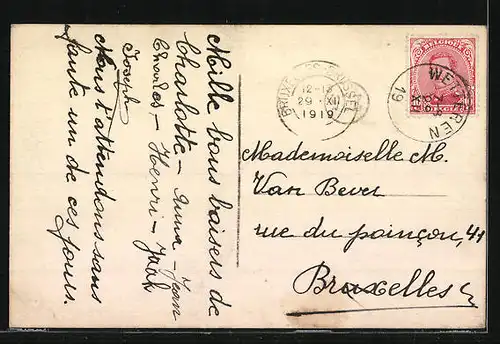 Mille bons baisers de
Charlotte – Anna – Jean
Charles – Henri – Jack
Joseph
Nous t'attendons sans
faute un de ces jours.
BRUXELLES BRUSSEL
29 XII
1919
BELGIQUE
WETTEREN
19
Mademoiselle M.
Van Bever
rue du poinçon, 41
Bruxelles